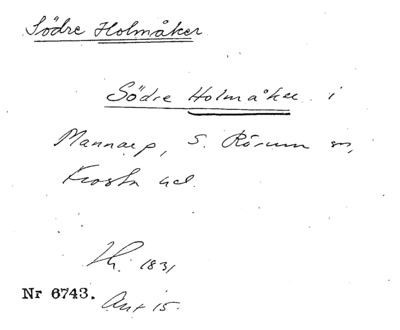 Södre Holmåker
Södre Holmåker i
Mannarp, S. Rörum sn,
Frosta hd.
1831
Nr 6743. Akt 15.